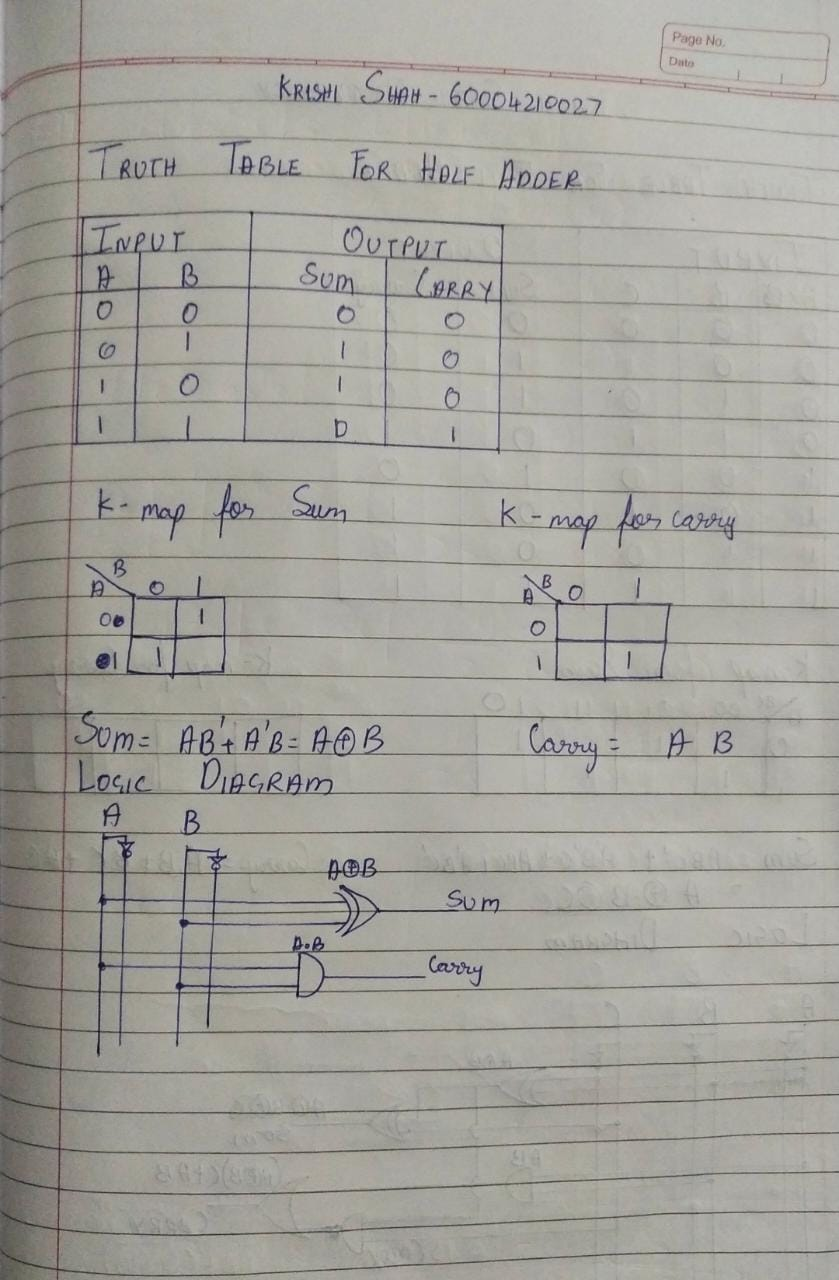 Page No.
Date
KRISHI SHAH - 60004210027
TRUTH TABLE FOR HALF ADDER
INPUT OUTPUT
A B SUM CARRY
0 0 0 0
0 1 1 0
1 0 1 0
1 1 0 1
K-map for Sum K-map for carry
B B
A 0 1 A 0 1
0 1 0
1 1 1 1
SUM = AB' + A'B = A⊕B Carry = A B
LOGIC DIAGRAM
A B
A⊕B
SUM
A.B
Carry